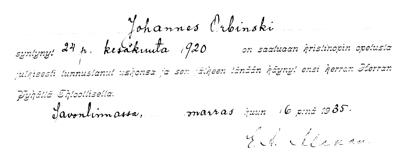 Johannes Orbinski
syntynyt 24 p. kesäkuuta 1920 on saatuaan kristinopin opetusta
julkisesti tunnustanut uskonsa ja sen jälkeen tänään käynyt ensi kerran Herran
Pyhällä Ehtoollisella.
Savonlinnassa, marras kuun 16 pnä 1935.
E. A.